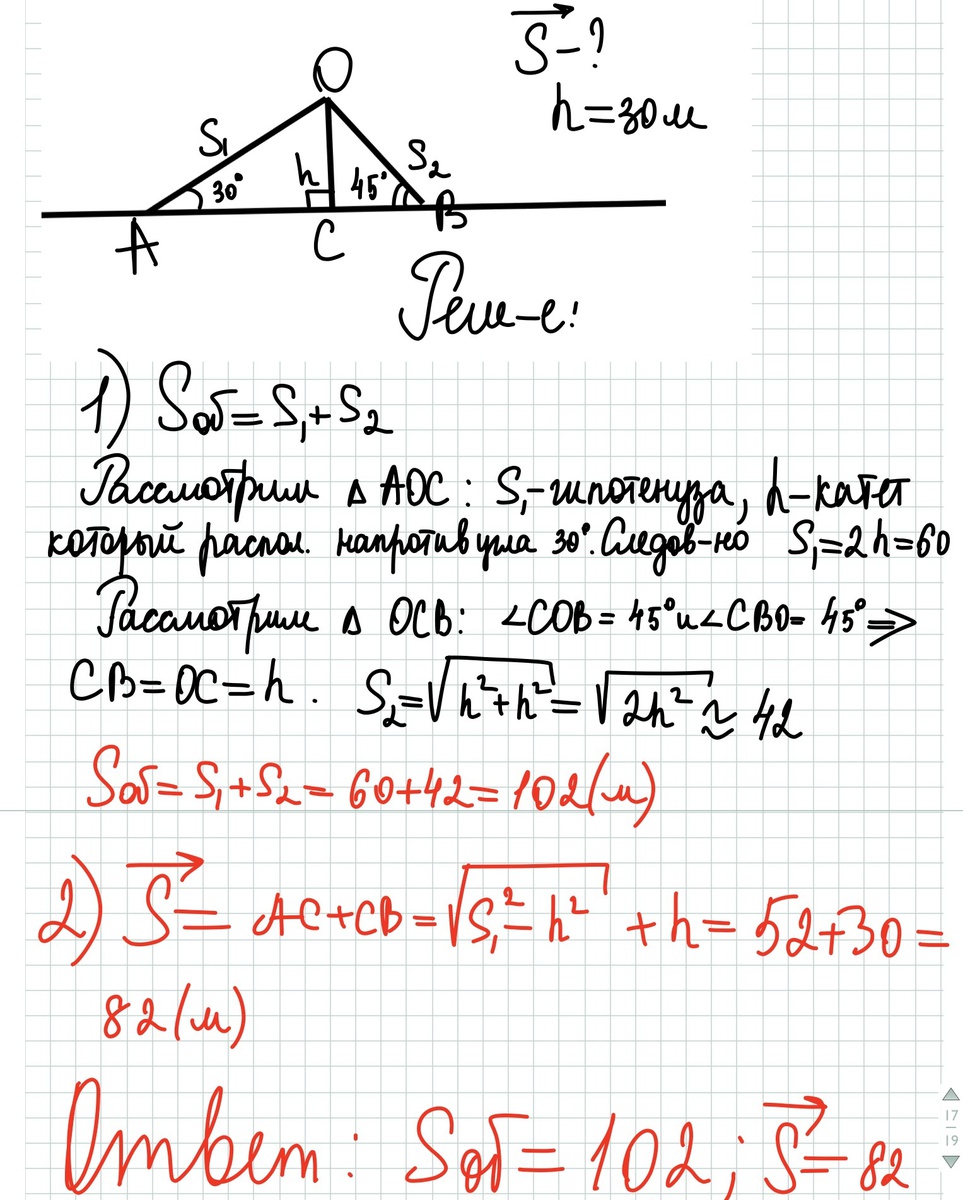 S⃗ - ?
h = 30 м
O
S₁
S₂
h
30°
45°
A
C
B
Реш-е:
1) Sоб = S₁ + S₂
Рассмотрим Δ AOC : S₁ - гипотенуза, h - катет
который распол. напротив угла 30°. Следов-но S₁ = 2h = 60
Рассмотрим Δ OCB: ∠COB = 45° и ∠CBO = 45° ⇒
CB = OC = h . S₂ = √(h² + h²) = √(2h²) ≈ 42
Sоб = S₁ + S₂ = 60 + 42 = 102 (м)
2) S⃗ = AC + CB = √(S₁² - h²) + h = 52 + 30 =
82 (м)
Ответ : Sоб = 102 ; S⃗ = 82
17
19